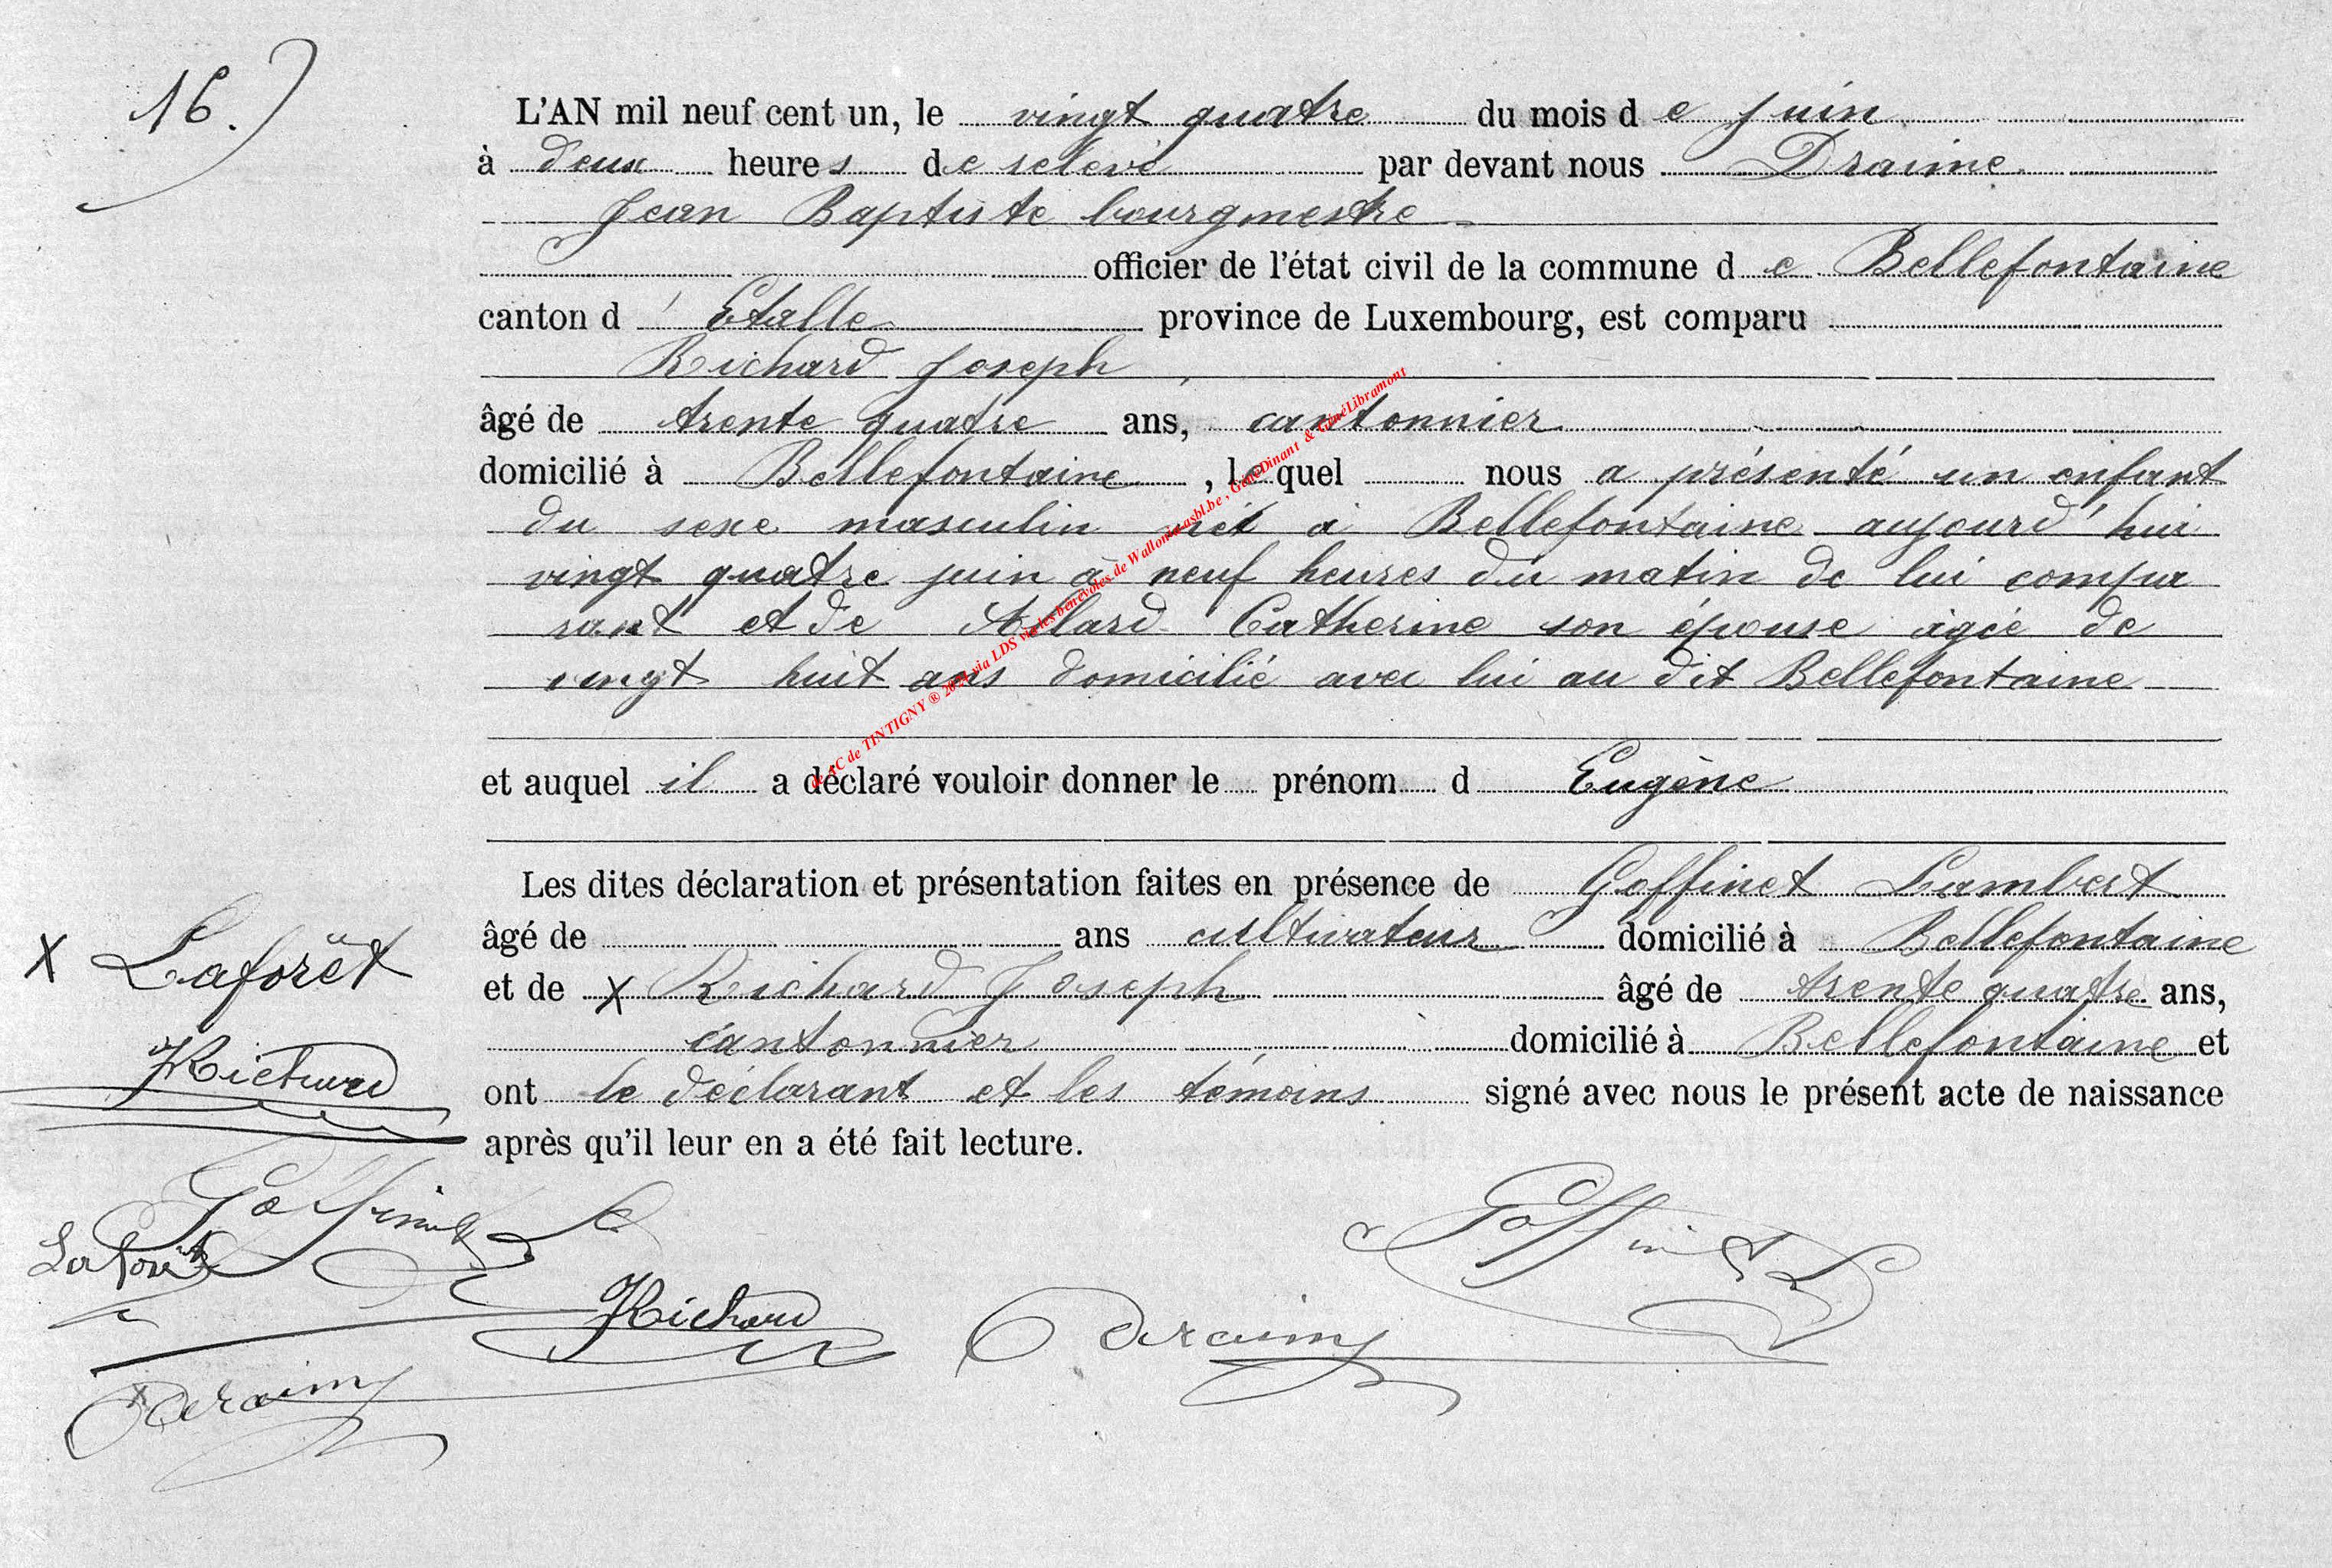 16.)
L'AN mil neuf cent un, le vingt quatre du mois de juin
à deux heures de relevé par devant nous Draime
Jean Baptiste bourgmestre
officier de l'état civil de la commune de Bellefontaine
canton d'Etalle province de Luxembourg, est comparu
Richard Joseph,
âgé de trente quatre ans, cantonnier
domicilié à Bellefontaine, lequel nous a présenté un enfant
du sexe masculin né à Bellefontaine aujourd'hui
vingt quatre juin à neuf heures du matin de lui compa
rant et de Allard Catherine son épouse âgée de
vingt huit ans domicilié avec lui au dit Bellefontaine
et auquel il a déclaré vouloir donner le prénom d Eugène
Les dites déclaration et présentation faites en présence de Goffinet Lambert
âgé de ans cultivateur domicilié à Bellefontaine
et de x Richard Joseph âgé de trente quatre ans,
cantonnier domicilié à Bellefontaine et
ont le déclarant et les témoins signé avec nous le présent acte de naissance
après qu'il leur en a été fait lecture.
x Laforêt
JRichard
Goffinet L
Laforêt
JRichard
Draime
Goffinet L
Draime
de AC de TINTIGNY ® 2024 via LDS via les bénévoles de Wallonia asbl.be, GénéDinant & GénéLibramont